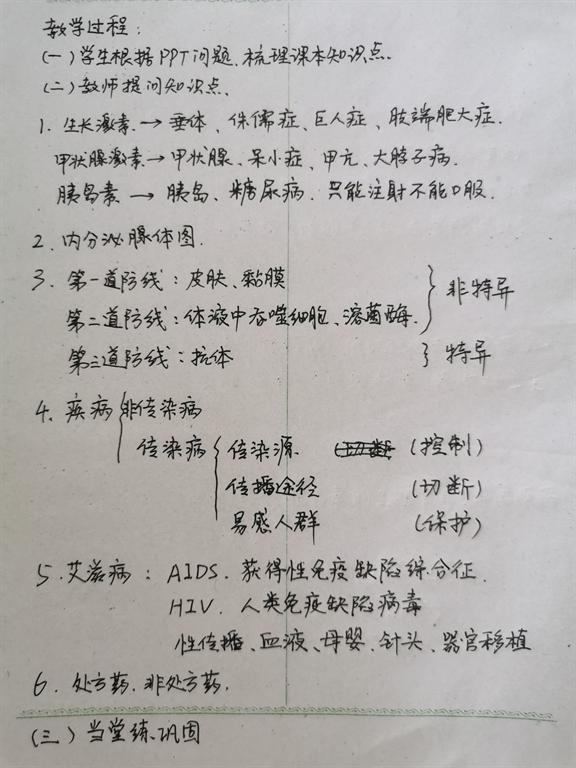 教学过程:
(一)学生根据PPT问题、梳理课本知识点.
(二)教师提问知识点、
1. 生长激素→垂体、侏儒症、巨人症、肢端肥大症.
甲状腺激素→甲状腺、呆小症、甲亢、大脖子病.
胰岛素→胰岛、糖尿病.只能注射不能口服.
2.内分泌腺体图.
3.第一道防线:皮肤、黏膜
第二道防线:体液中吞噬细胞、溶菌酶.
非特异
第三道防线:抗体 } 特异
4.疾病 非传染病
传染病 传染源. 切断 (控制)
传播途径 (切断)
易感人群 (保护)
5.艾滋病: AIDS.获得性免疫缺陷综合征.
HIV.人类免疫缺陷病毒
性传播、血液、母婴、针头、器官移植
6.处方药.非处方药.
(三)当堂练.巩固